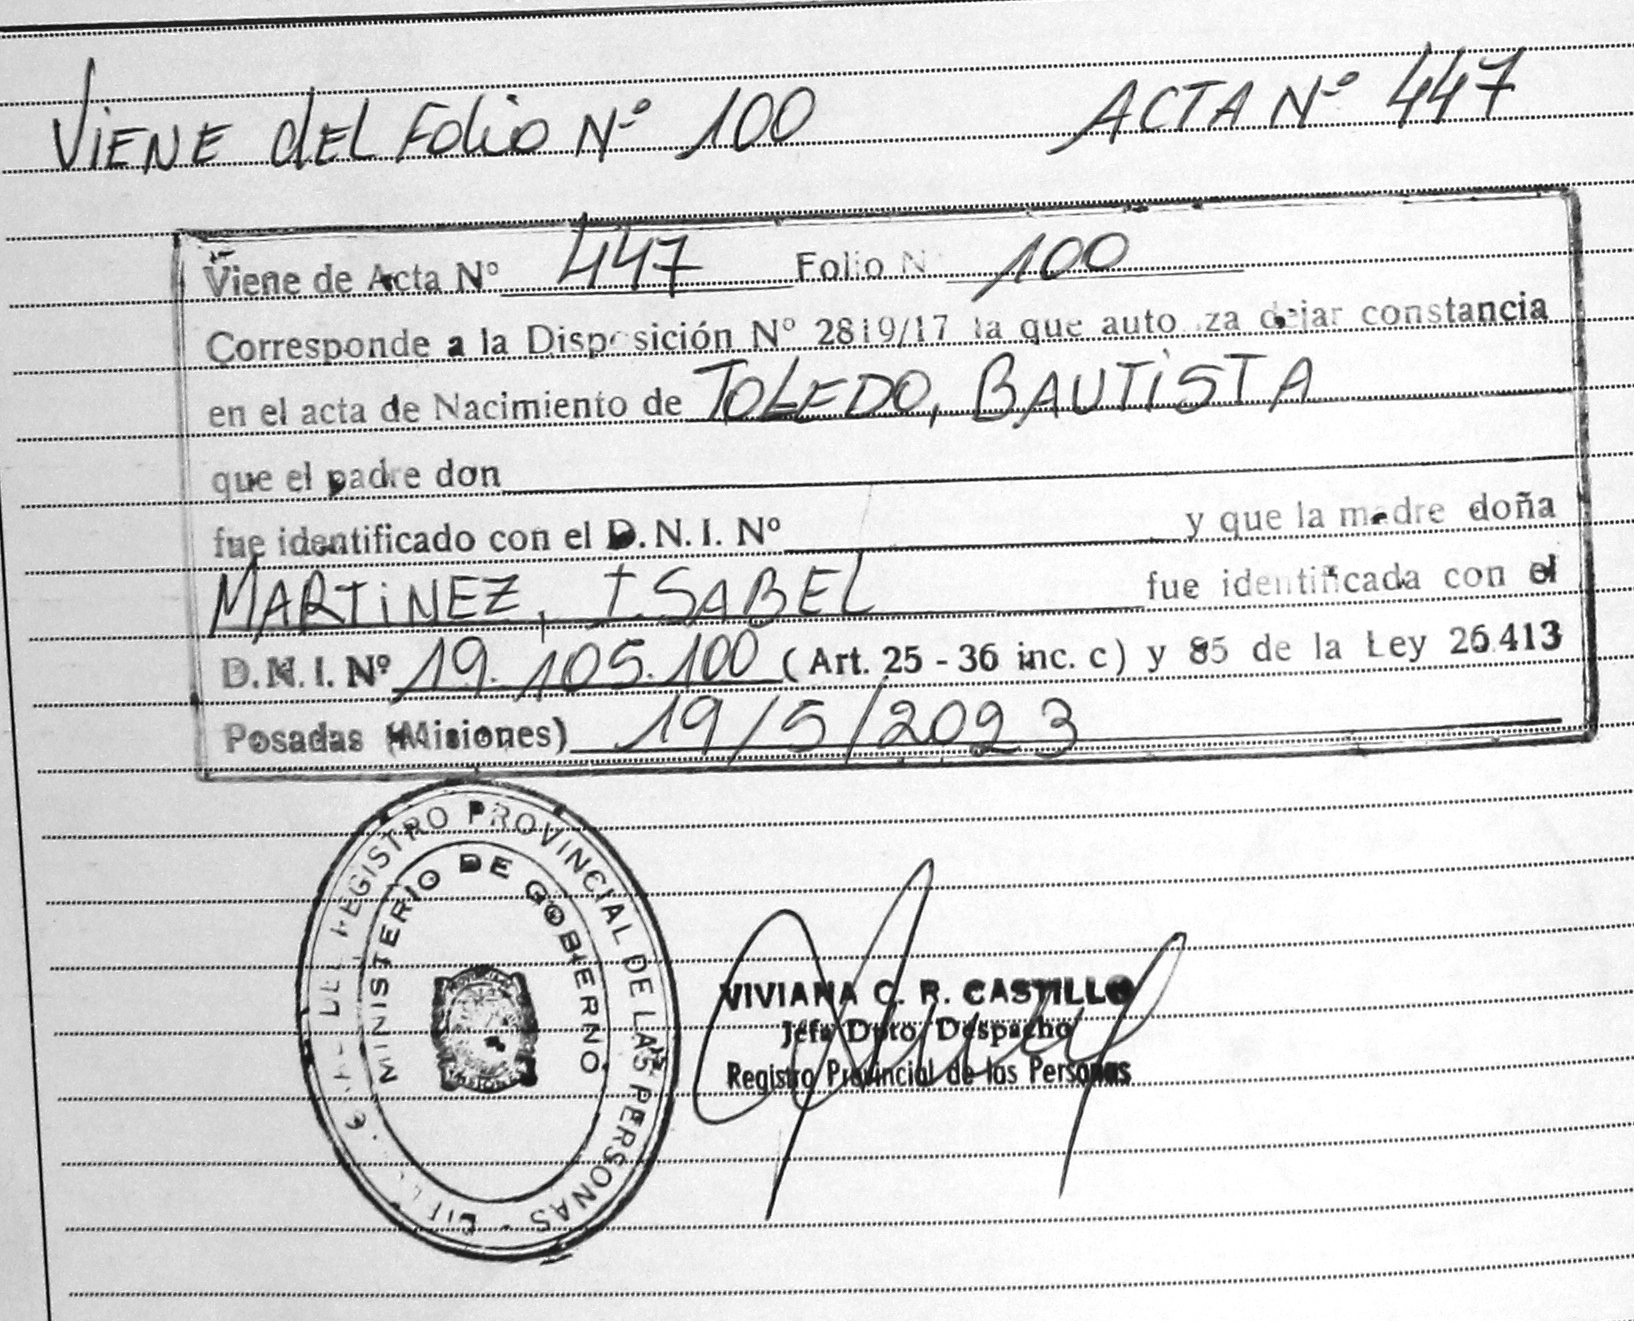 VIENE dEL FOLIO Nº 100 ACTA Nº 447
Viene de Acta Nº 447 Folio N 100
Corresponde a la Disposición Nº 2819/17 la que autoriza dejar constancia
en el acta de Nacimiento de TOLEDO, BAUTISTA
que el padre don
fue identificado con el D.N.I. Nº y que la madre doña
MARTINEZ, ISABEL fue identificada con el
D.N.I. Nº 19.105.100 (Art. 25 - 36 inc. c) y 85 de la Ley 26.413
Posadas (Misiones) 19/5/2023
DEL REGISTRO PROVINCIAL DE LAS PERSONAS
MINISTERIO DE GOBIERNO
VIVIANA C. R. CASTILLO
Jefa Dpto. Despacho
Registro Provincial de las Personas